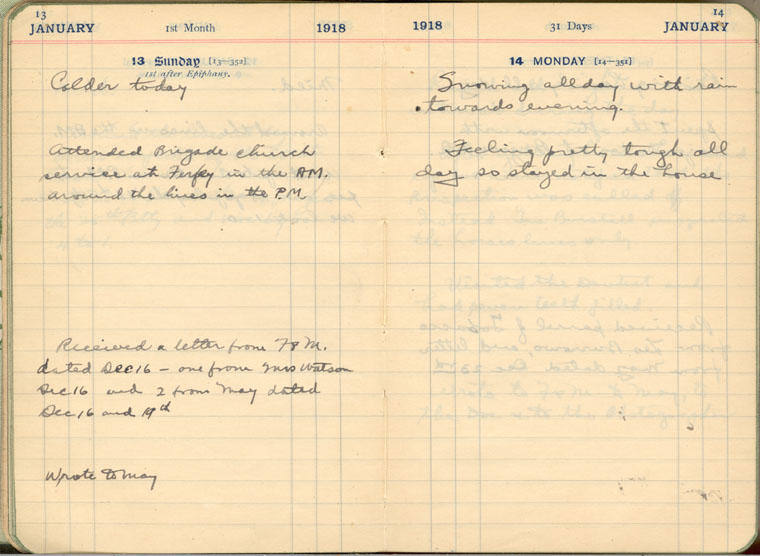 13
JANUARY 1st Month 1918
13 Sunday [13–352]
1st after Epiphany.
Colder today
Attended Brigade church
service at Ferfay in the AM.
around the lines in the P.M.
Received a letter from F & M.
dated Dec 16 – one from Mrs Watson
Dec 16 and 2 from May dated
Dec 16 and 19th
Wrote to May
14
1918 31 Days JANUARY
14 MONDAY [14–351]
Snowing all day with rain
towards evening.
Feeling pretty tough all
day so stayed in the house